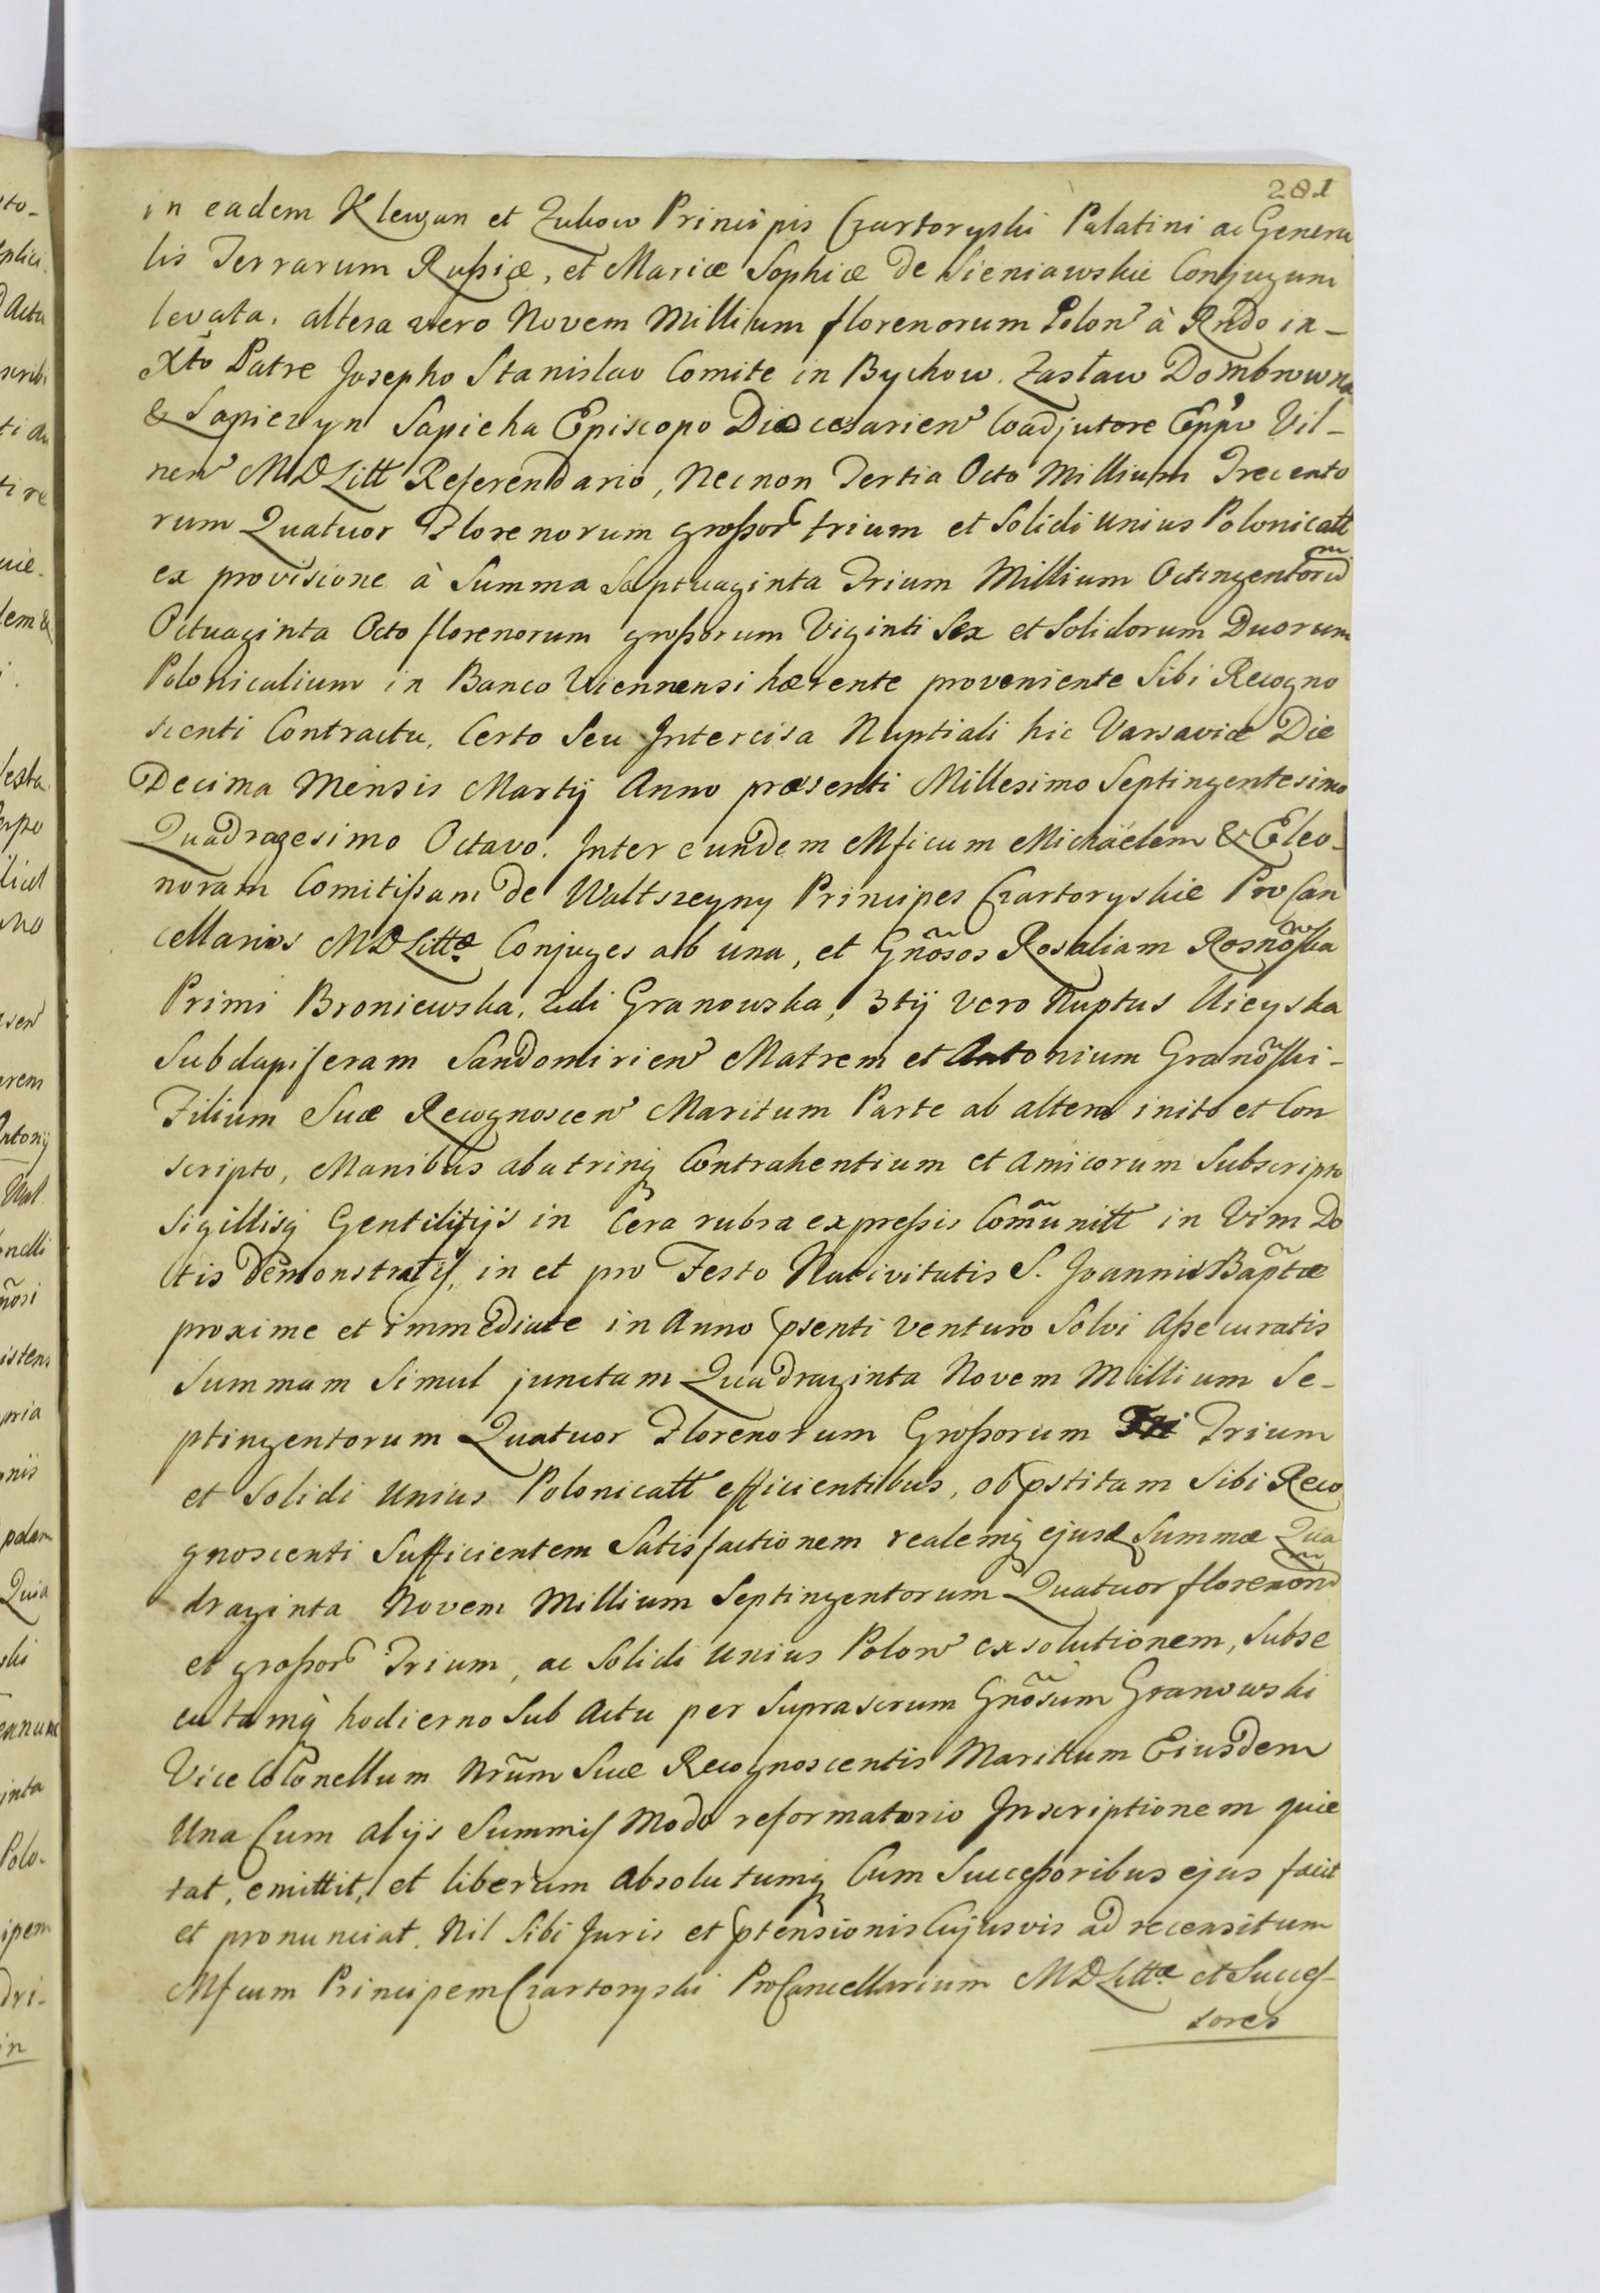 281
in eadem Klewan et Zukow Principis Czartoryski Palatini ac Genera
lis Terrarum Rußiæ, et Mariæ Sophiæ de Sieniawskie Conjugum
levata, altera vero Novem Millium florenorum Polon à Rndo in-
Xto Patre Josepho Stanislao Comite in Bychow. Zasław Dombrowna
& Sapiezyn Sapieha Episcopo Diocesarien Coadjutore Eppo Vil-
nen MDLitt Referendario, Necnon Tertia Octo Millium Trecento
rum Quatuor Florenorum großor trium et Solidi unius Polonicall
ex provisione à Summa Septuaginta Trium Millium Octingentorum
Octuaginta Octo florenorum großorum Viginti Sex et Solidorum Duorum
Polonicalium in Banco Viennensi hærente proveniente Sibi Recogno
scenti Contractu, Certo Seu Intercisa Nuptiali hic Varsaviæ Die
Decima Mensis Martij Anno præsenti Millesimo Septingentesimo
Quadragesimo Octavo. Inter eundem Mficum Michäelem & Eleo-
noram Comitißam de Waltszeyny Principes Czartoryskie ProCan
cellarios MDLittæ Conjuges ab una, et Gnõsos Rosaliam Rosnõska
Primi Broniewska, 2di Granowska, 3tij vero Nuptus Uieyska
Subdapiferam Sandomirien Matrem et Antonium Granõski-
Filium Suæ Recognoscen Maritum Parte ab altera inito et Con
scripto, Manibus abutrinq Contrahentium et Amicorum Subscripto
Sigillisq Gentilitijs in Cera rubra expreßis Com̃unitt in Vim Do
tis Demonstratis, in et pro Festo Nativitatis S. Joannis Bap̃tæ
proxime et immediate in Anno psenti venturo Solvi Aßecuratis
Summam Simul junctam Quadraginta Novem Millium Se-
ptingentorum Quatuor Florenorum Großorum Tri Trium
et Solidi Unius Polonicall efficientibus, ob pstitam Sibi Reco
gnoscenti Sufficientem Satisfactionem realemq ejusd Summæ Qua
draginta Novem Millium Septingentorum Quatuor florenorum
et großor Trium, ac Solidi Unius Polon exsolutionem, Subse
cutamq hodierno Sub Actu per Suprascrum Gnõsum Granowski
Vice Colonellum Nr̃um Suæ Recognoscentis Maritum Eiusdem
Una Cum alijs Summis Modo reformatorio Inscriptionem quie
tat, emittit, et liberum absolutumq Cum Succeßoribus ejus facit
et pronunciat. Nil Sibi Juris et ptensionis Cujusvis ad recensitum
Mfcum Principem Czartoryski ProCancellarium MDLittæ et Succes-
sores